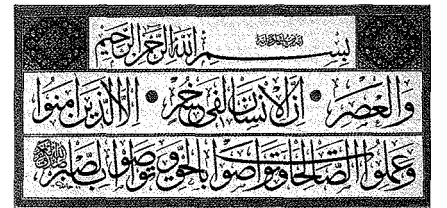 بسم الله الرحمن الرحيم
والعصر ان الانسان لفي خسر الا الذين امنوا
وعملوا الصالحات وتواصوا بالحق وتواصوا بالصبر